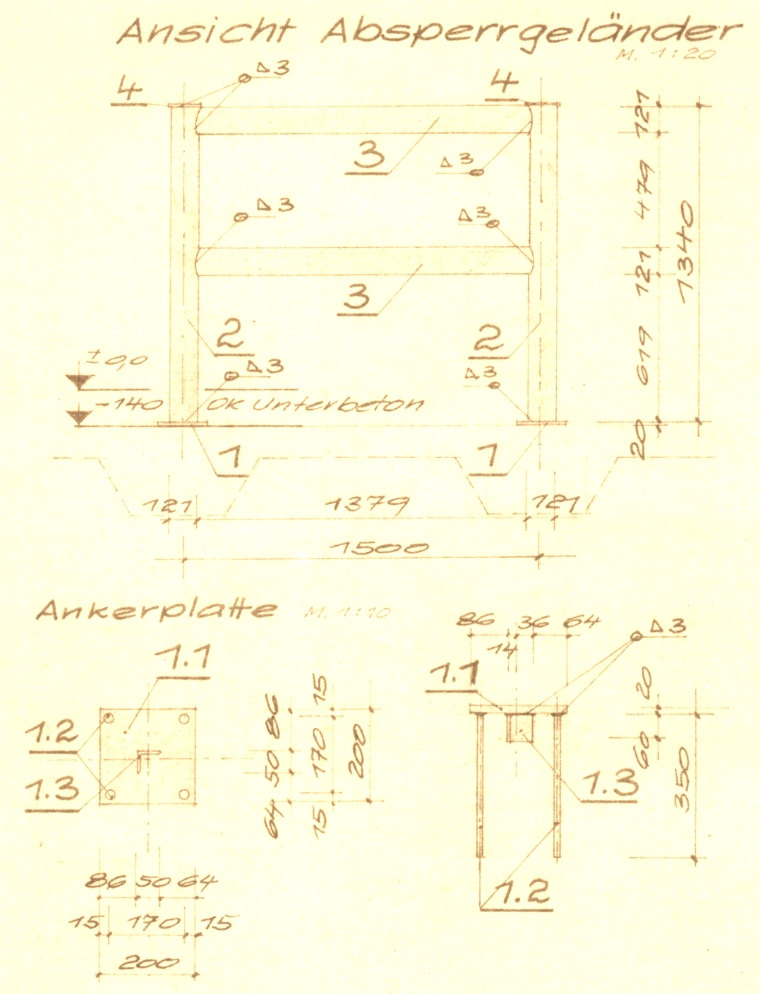 Ansicht Absperrgeländer
M. 1:20
4
Δ3
4
121
3
Δ3
479
1340
Δ3
Δ3
121
3
2
2
619
±0,0
Δ3
Δ3
-140 OK Unterbeton
20
1
1
121 1379 121
1500
Ankerplatte M. 1:10
86 36 64
14
Δ3
1.1
1.1
20
1.2
86 15
50 170 200
64 15
1.3
60
350
1.3
1.2
86 50 64
15 170 15
200